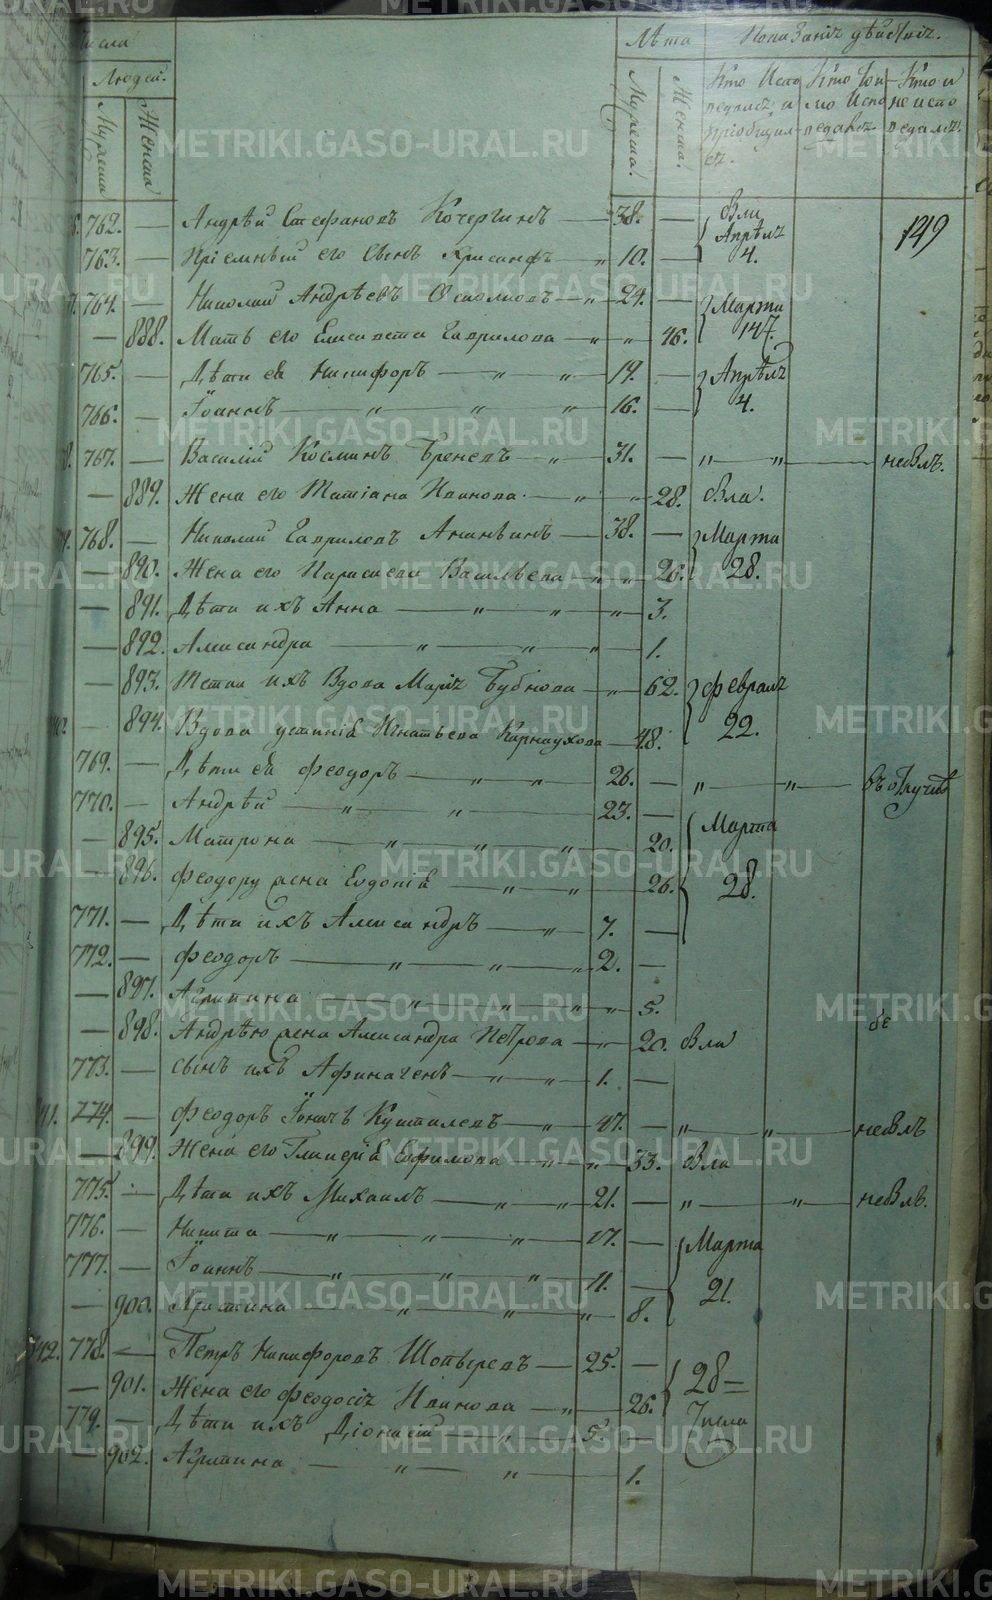 METRIKI.GASO-URAL.RU
Числа
Людей.
Мужеска
Женска
Лѣта
Мужеска.
Женска.
Показаніе дѣйствіе.
Кто Испо
ведался и
пріобщил
ся.
Кто
мо Испо
ведался
Кто и
не испо
ведался.
149
762. — Андрѣй Стефановъ Кочергинъ — 38. — были Апрѣля 4.
763. — Пріемный его сынъ Хрисанфъ — " 10. —
764. — Николай Андрѣевъ — " 24. — Марта 147.
— 888. Мать его Елисавета Гаврилова — " " 46.
765. — Дѣти ея Никифоръ — " — " 19. — Апрѣля 4.
766. — Іоаннъ — " — " — " 16. —
767. — Василій Косминъ — " 31. — " — " — небылъ.
— 889. Жена его Татіана Иванова — " — " 28. была.
768. — Николай Гавриловъ Ананьинъ — " 38. — Марта 28.
— 890. Жена его Параскева Васильева — " " 26.
— 891. Дѣти ихъ Анна — " — " — " 3.
— 892. Александра — " — " — " 1.
— 893. Тетка ихъ Вдова Марія Бубнова — " 62. февраля 22.
— 894. Вдова Устинія Игнатьева Карнаухова — 48.
769. — Дѣти ея Феодоръ — " — " 26. — " — " — въ отлучкѣ
770. — Андрѣй — " — " 23. — Марта 28.
— 895. Матрона — " — " — " 20.
— 896. Феодору жена Евдокія — " — " 26.
771. — Дѣти ихъ Александръ — " 7. —
772. — Феодоръ — " — " — " 2. —
— 897. Агрипина — " — " — " 5.
— 898. Андрѣю жена Александра Петрова — " 20. была
773. — сынъ ихъ — " — " 1. —
41. 774. — Феодоръ — " 47. — " — " — небылъ
— 899. Жена его Гликерія Ефимова — " " 33. была
775. — Дѣти ихъ Михаилъ — " — " 21. — " — " небылъ.
776. — Никита — " — " — " 17. — Марта 21.
777. — Іоаннъ — " — " — " 11. —
— 900. Христина — " — " — " 8.
42. 778. — Петръ Никифоровъ — 25. — 28 = Числа
— 901. Жена его Феодосія Иванова — " 26.
779. — Дѣти ихъ Діонисій — " 5. —
— 902. Агрипина — " — " — 1.